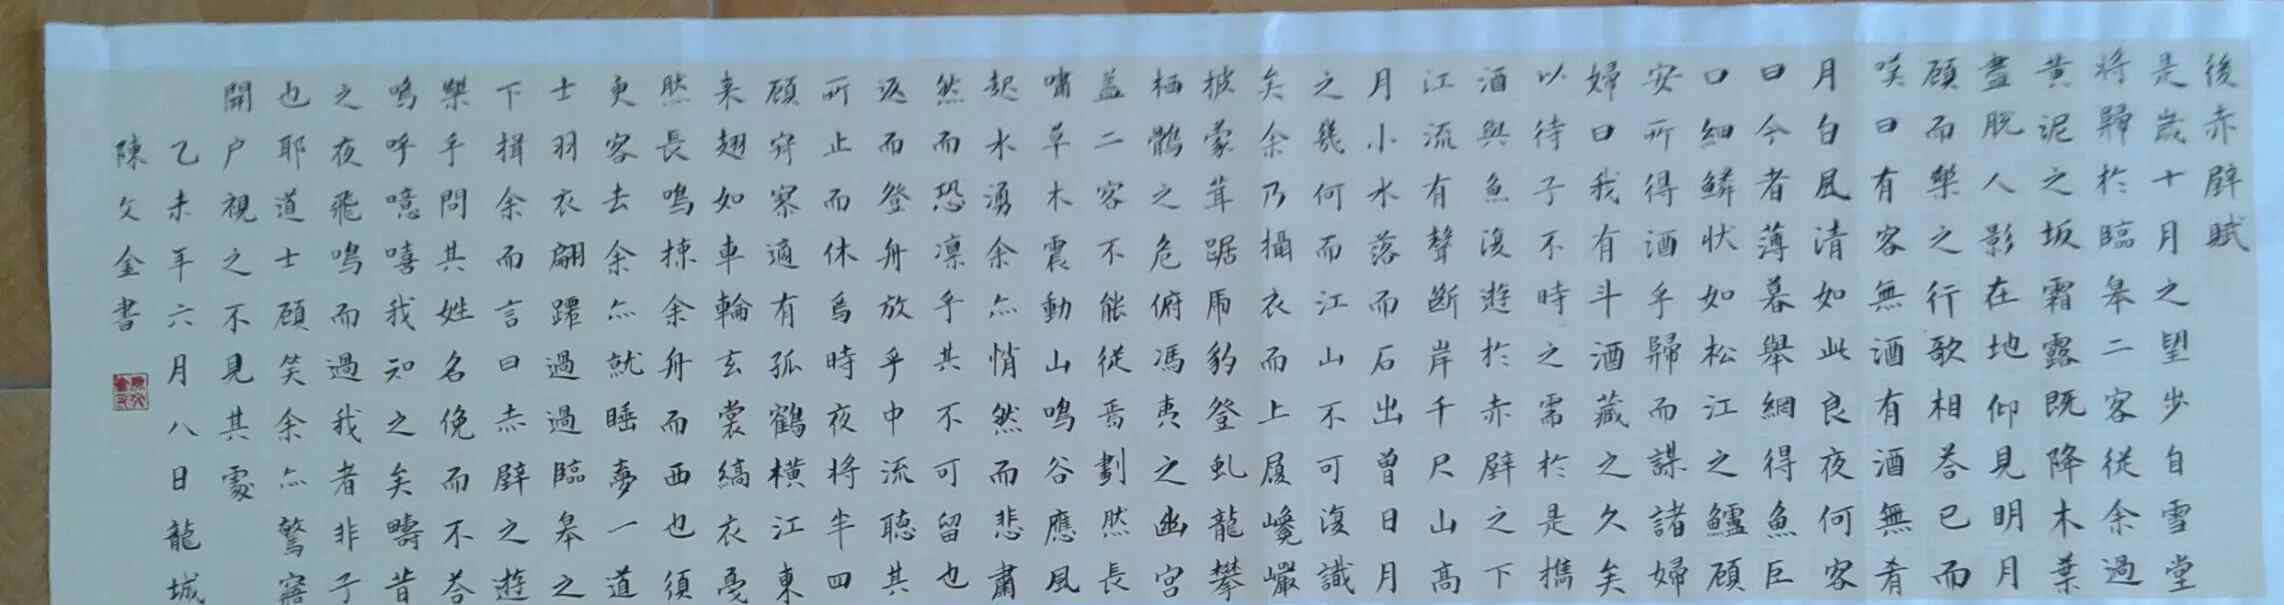 後赤壁賦
是歲十月之望步自雪堂
將歸於臨皋二客從余過
黃泥之坂霜露既降木葉
盡脫人影在地仰見明月
顧而樂之行歌相答已而
嘆曰有客無酒有酒無肴
月白風清如此良夜何客
曰今者薄暮舉網得魚巨
口細鱗狀如松江之鱸顧
安所得酒乎歸而謀諸婦
婦曰我有斗酒藏之久矣
以待子不時之需於是攜
酒與魚復遊於赤壁之下
江流有聲斷岸千尺山高
月小水落而石出曾日月
之幾何而江山不可復識
矣余乃攝衣而上履巉巖
披蒙茸踞虎豹登虬龍攀
栖鶻之危俯馮夷之幽宮
蓋二客不能從焉劃然長
嘯草木震動山鳴谷應風
起水湧余亦悄然而悲肅
然而恐凜乎其不可留也
返而登舟放乎中流聽其
所止而休焉時夜將半四
顧寂寥適有孤鶴橫江東
来翅如車輪玄裳縞衣戛
然長鳴掠余舟而西也須
臾客去余亦就睡夢一道
士羽衣翩躚過過臨皋之
下揖余而言曰赤壁之遊
樂乎問其姓名俛而不答
嗚呼噫嘻我知之矣疇昔
之夜飛鳴而過我者非子
也耶道士顧笑余亦驚寤
開户視之不見其處
乙未年六月八日龍城
陳文金書